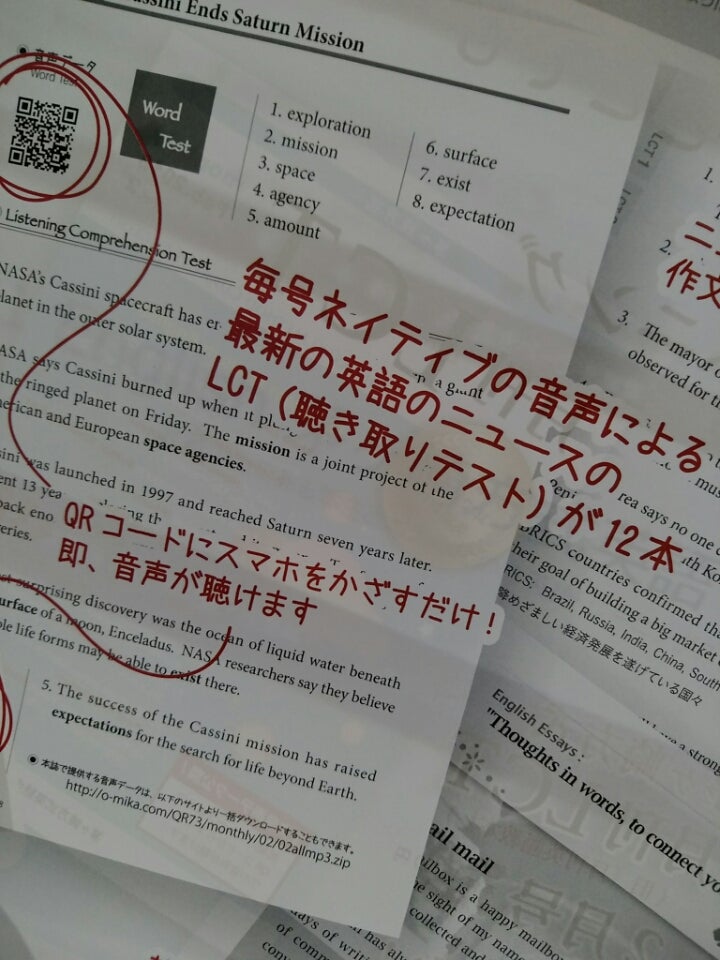 assini Ends Saturn Mission
音声データ
Word Test
Word
Test
1. exploration
2. mission
3. space
4. agency
5. amount
6. surface
7. exist
8. expectation
Listening Comprehension Test
NASA's Cassini spacecraft has
planet in the outer solar system.
a giant
NASA says Cassini burned up when it
the ringed planet on Friday. The mission is a joint project of the
American and European space agencies.
was launched in 1997 and reached Saturn seven years later.
13
surprising discovery was the ocean of liquid water beneath
surface of a moon, Enceladus. NASA researchers say they believe
life forms may be able to exist there.
5. The success of the Cassini mission has raised
expectations for the search for life beyond Earth.
本誌で提供する音声データは、以下のサイトより一括ダウンロードすることもできます。
http://o-mika.com/QR73/monthly/02/02allmp3.zip
毎号ネイティブの音声による
最新の英語のニュースの
LCT（聴き取りテスト）が12本
QRコードにスマホをかざすだけ！
即、音声が聴けます
LCT 1
1.
2.
作文
3. The mayor o
observed for t
says no one
BRICS countries confirmed tha
their goal of building a big market
BRICS: Brazil, Russia, India, China, South
めざましい経済発展を遂げている国々
a strong
English Essays :
"Thoughts in words, to connect yo
ail mail
mailbox is a happy mailbox
the sight of my name
collected and
days of writi
of comm
conv